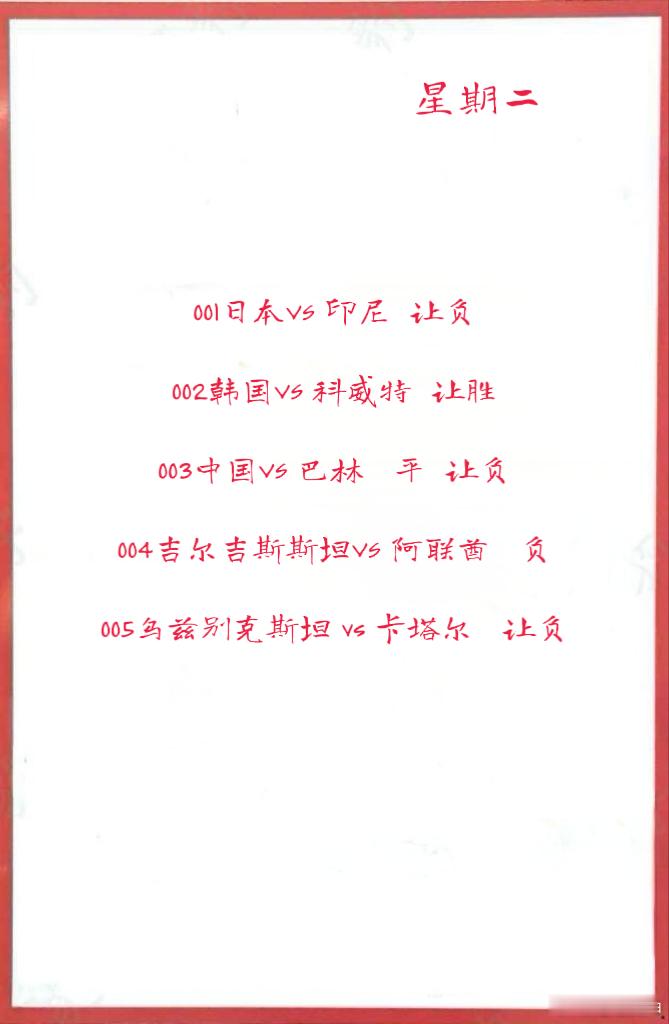 星期二
001日本vs 印尼 让负
002韩国vs 科威特 让胜
003中国vs 巴林 平 让负
004吉尔吉斯斯坦vs 阿联酋 负
005乌兹别克斯坦 vs 卡塔尔 让负